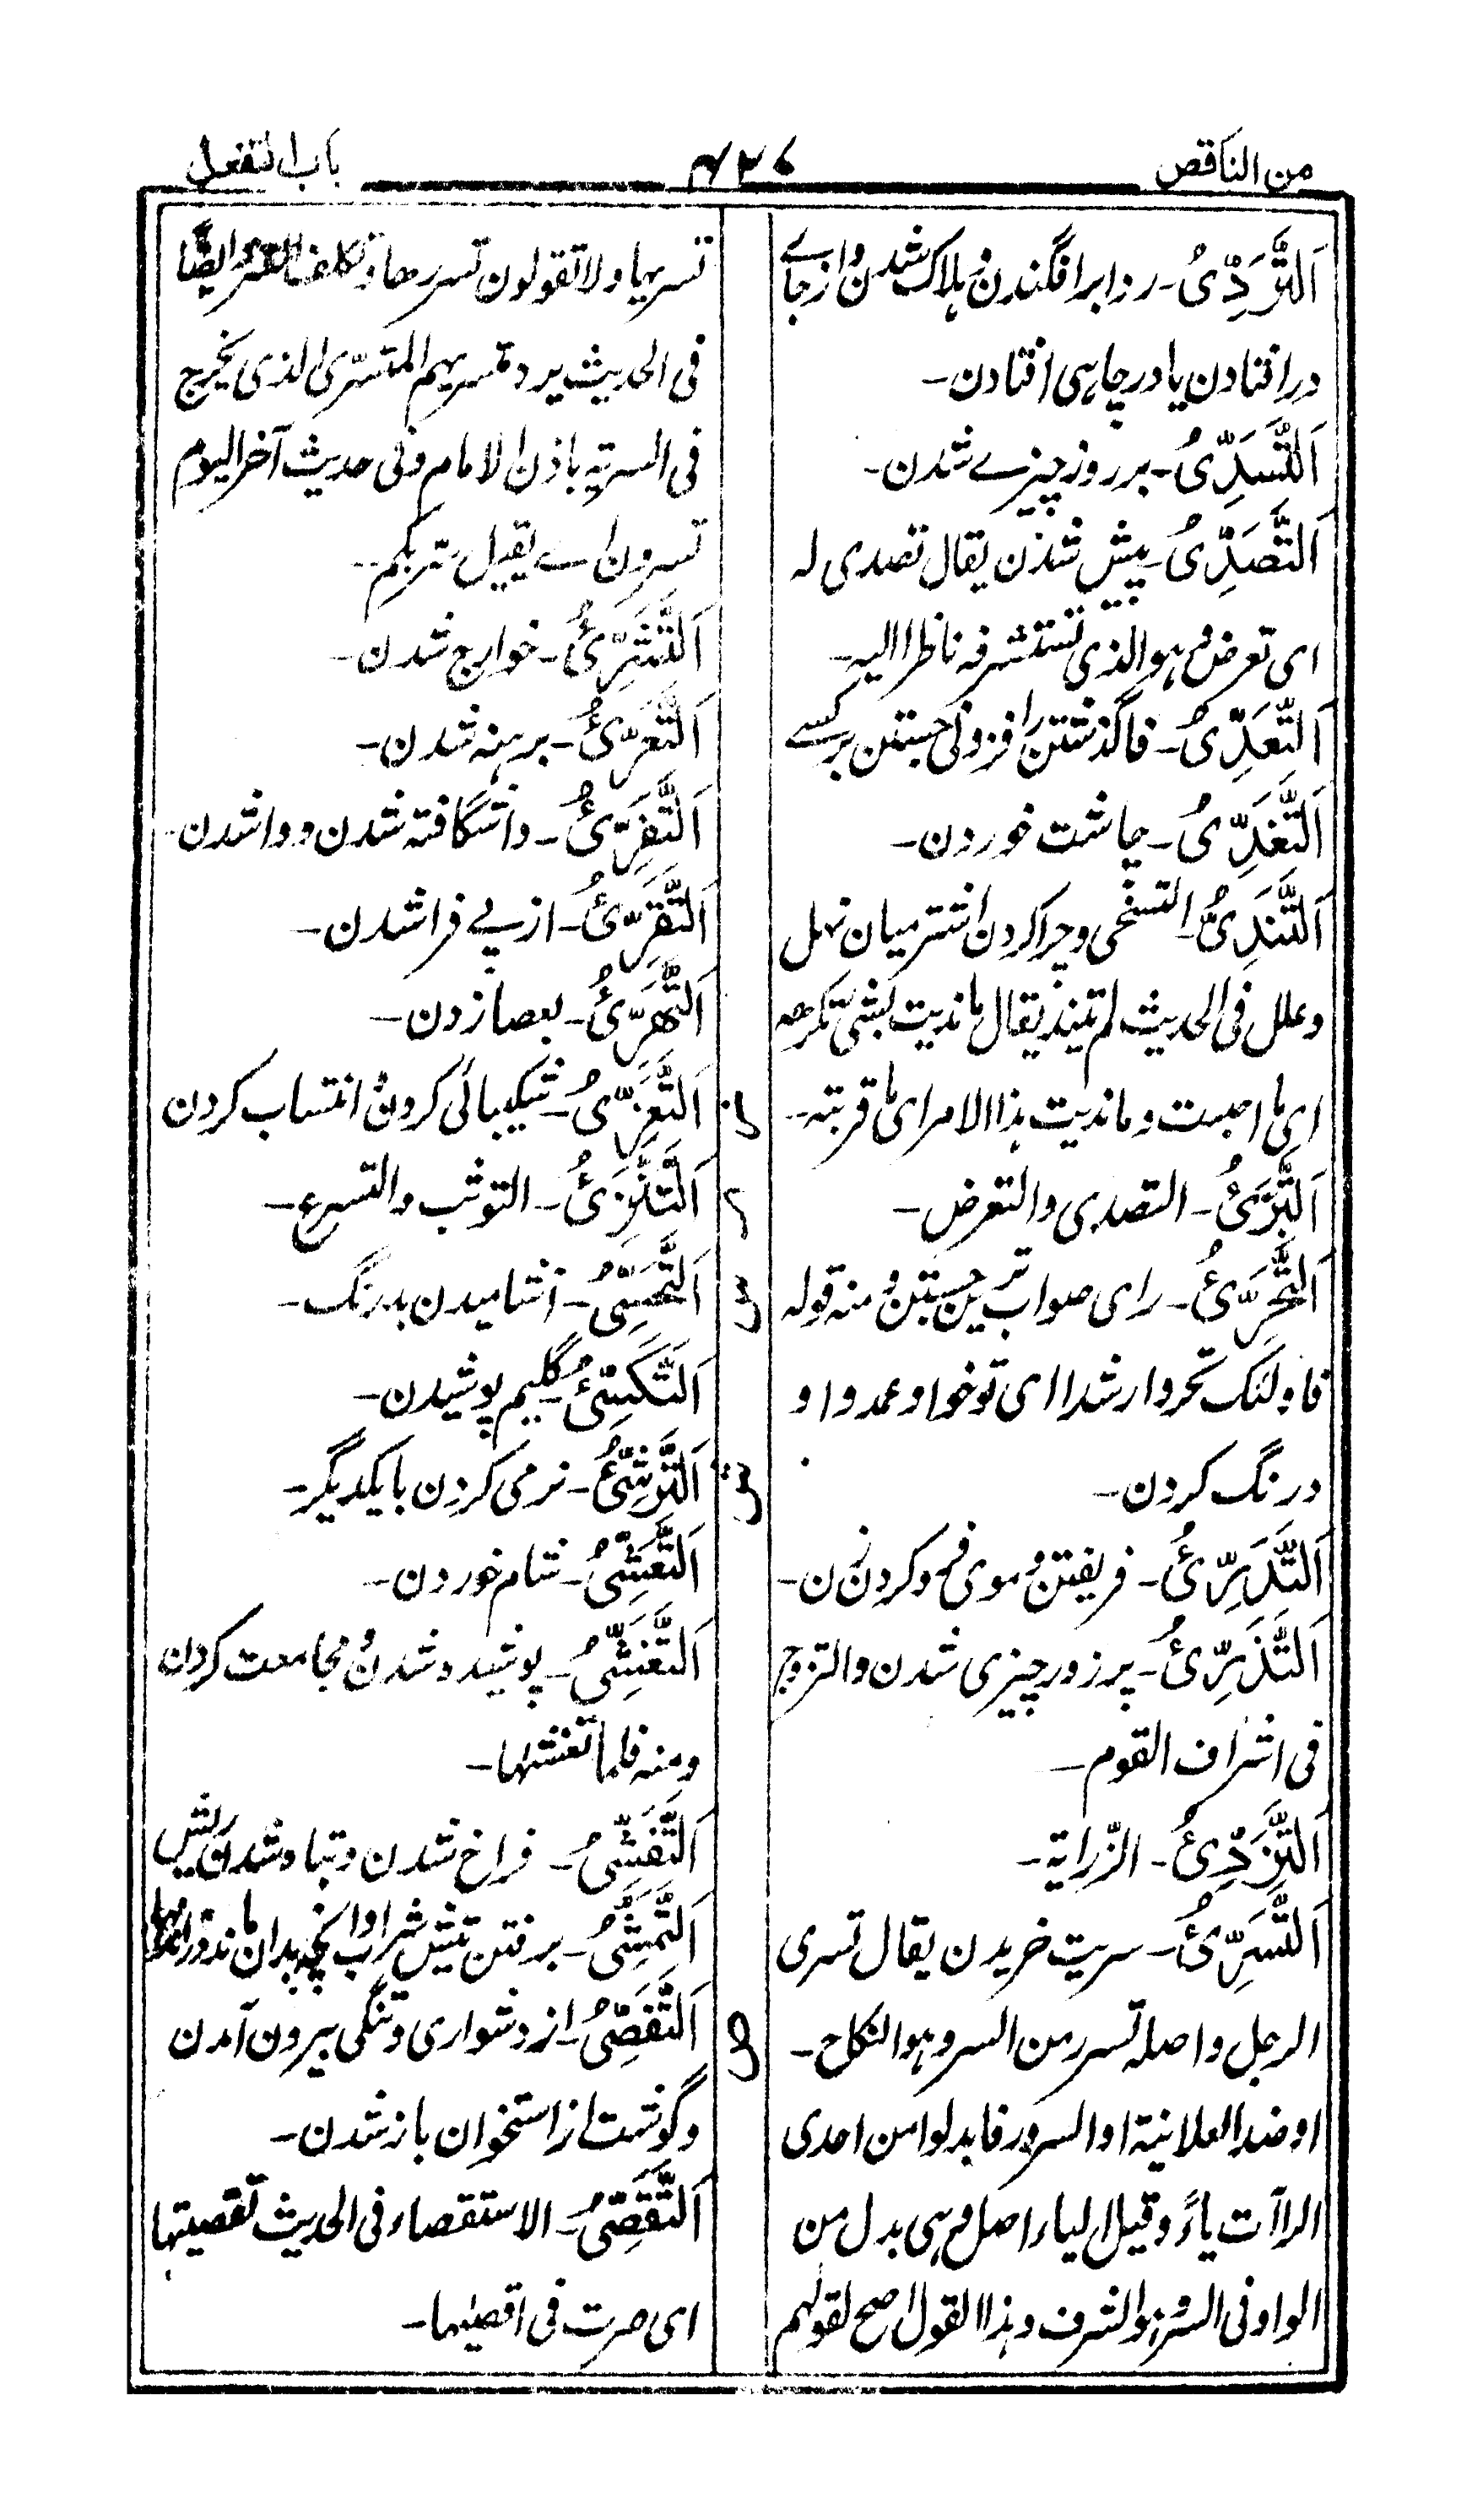 من الناقص
۷۲۶
باب التفعل
اَلتَّرَدِّیُ۔ ردا برافگندن و ہلاک شدن و از جاے
درافتادن یا در چاہی افتادن۔
اَلتَّسَدِّیُ۔ بر روز چیزے شدن۔
اَلتَّصَدِّیُ۔ پیش شدن یقال تصدی لہ
ای تعرض و ہو الذی تستشرفہ ناظرا الیہ۔
اَلتَّعَدِّیُ۔ فاگذشتن را فزونی جستن بر کسے
اَلتَّغَدِّیُ۔ چاشت خوردن۔
اَلتَّنَدِّیُ۔ التسخی و چرا کردن اشتر میان نہل
و علل فی الحدیث لم یقال ما ندیت بشئ تکرہہ
ای ما اصبت و ما ندیت ہذا الامر ای ما قربتہ۔
اَلتَّبَرِّیُٔ۔ التصدی و التعرض۔
اَلتَّحَرِّیُٔ۔ رای صواب ترین جستن و منہ قولہ
فاولئک تحروا رشدا ای توخوا و عمدوا و
درنگ کردن۔
اَلتَّدَرِّیُٔ۔ فریفتن و موی فرو کردن زن۔
اَلتَّذَرِّیُٔ۔ بر زور چیزی شدن و التزوج
فی اشراف القوم۔
اَلتَّزَرِّیُٔ۔ الزّرایة۔
اَلتَّسَرِّیُٔ۔ سریت خریدن یقال تسری
الرجل و اصلہ تسرر من السر و ہو النکاح۔
او ضد العلانیة او السرور فابدلوا من احدی
الراآت یاءً و قیل الیاء اصل و ہی بدل من
الواو فی السرو و ہو الشرف و ہذا القول اصح لقولہم
تسریہا و لا تقولون تسررہا و تکلف ایضًا
فی الحدیث یرد متسریہم المتسرّی الذی یخرج
فی السریة باذن الامام و فی حدیث آخر الیوم
تسرون اے یقیل سریکم۔
اَلتَّشَرِّیُٔ۔ خوارج شدن۔
اَلتَّعَرِّیُٔ۔ برہنہ شدن۔
اَلتَّفَرِّیُٔ۔ واشگافتہ شدن و واشدن۔
اَلتَّقَرِّیُٔ۔ از پے فراشدن۔
اَلتَّہَرِّیُٔ۔ بعصا زدن۔
ز اَلتَّعَزِّیُ۔ شکیبائی کردن و انتساب کردن
اَلتَّنَزِّیُٔ۔ التوثب و التسرع۔
س اَلتَّحَسِّیُ۔ اشامیدن بدرنگ۔
اَلتَّکَسِّیُٔ۔ گلیم پوشیدن۔
ش اَلتَّرَشِّیُٔ۔ نرمی کردن با یکدیگر۔
اَلتَّعَشِّیُ۔ شام خوردن۔
اَلتَّغَشِّیُ۔ پوشیدہ شدن و مجامعت کردن
و منہ فلما تغشٰہا۔
اَلتَّفَشِّیُ۔ فراخ شدن و تباہ شدن ریش
اَلتَّمَشِّیُ۔ برفتن تپش شراب و آنچہ بدان ماند در
ص اَلتَّفَصِّیُ۔ از دشواری و تنگی بیرون آمدن
و گوشت از استخوان باز شدن۔
اَلتَّقَصِّیُ۔ الاستقصاء فی الحدیث تقصیتہا
ای صرت فی اقصٰیہا۔